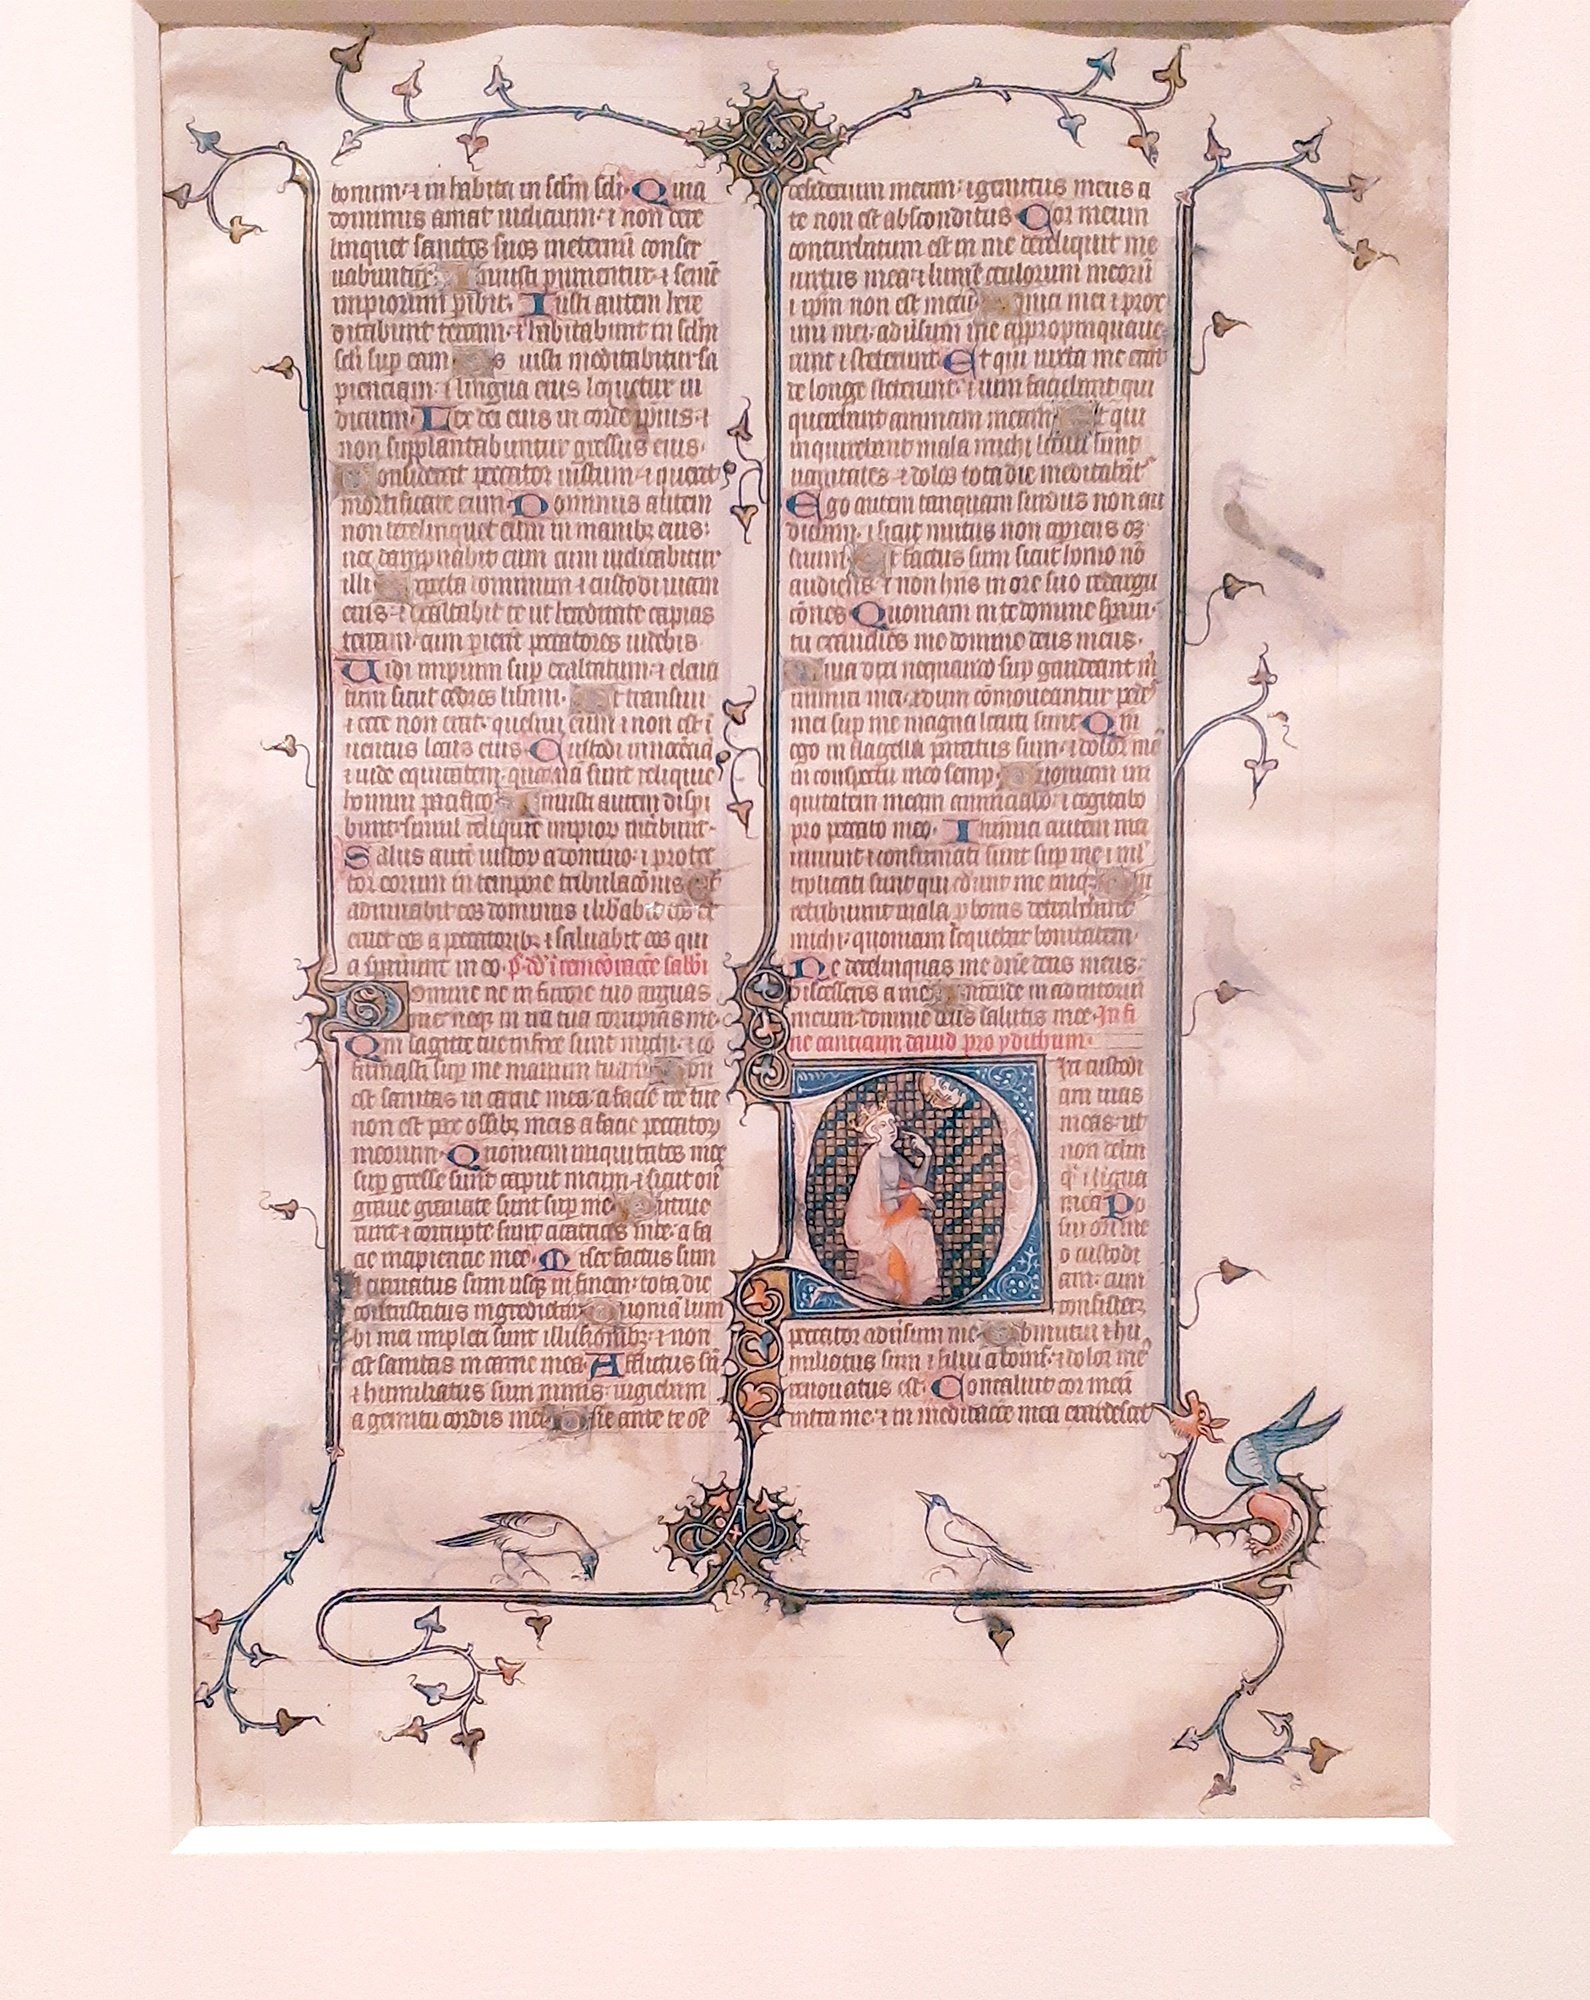 bonum · ⁊ inhabita in sclm scli · Quia
dominus amat iudicium · ⁊ non dere
linquet sanctos suos ineternū conser
uabuntur · Iniusti punientur · ⁊ semē
impiorum pibit · Iusti autem here
ditabunt terram · ⁊ habitabunt in sclm
scli sup eam · Os iusti meditabitur sa
pienciam · ⁊ lingua eius loquetur iu
dicium · Lex dei eius in corde ipsius · ⁊
non supplantabuntur gressus eius ·
Considerat peccator iustum · ⁊ querit
mortificare eum · Dominus autem
non derelinquet eum in manibꝫ eius :
nec dampnabit eum cum iudicabitur
illi · Expecta dominum ⁊ custodi uiam
eius · ⁊ exaltabit te ut hereditate capias
terram · cum pierit peccatores uidebis ·
Uidi impium sup exaltatum · ⁊ eleua
tum sicut cedros libani · Et transiui
⁊ ecce non erat · quesiui eum ⁊ non est i
uentus locus eius · Custodi innocēciā
⁊ uide equitatem · quoniā sunt relique
homini pacifico · Iniusti autem dispi
bunt · simul reliquie impioꝝ intibunt ·
Salus autē iustoꝝ a domino · ⁊ protec
tor eorum in tempore tribulacōnis · Et
adiuuabit eos dominus ⁊ libabit eos et
eruet eos a peccatoribꝫ ⁊ saluabit eos qui
a sperauerunt in eo · P · dd̄ ī rememoracōe sabbi
Domine ne in furore tuo arguas
me · neqꝫ in ira tua corripias me ·
Qm̄ sagitte tue infixe sunt michi · ⁊ cō
firmasti sup me manum tuam · Non
est sanitas in carne mea · a facie ire tue
non est pax ossibꝫ meis a facie peccatoꝝ
meorum · Quoniam iniquitates mee
sup gresse sunt caput meum · ⁊ sicut on̄
graue grauate sunt sup me · Putrue
runt ⁊ corrupte sunt cicatrices mee · a fa
cie insipientie mee · Miser factus sum
⁊ curuatus sum usqꝫ in finem · tota die
contristatus ingrediebar · Quoniā lum
bi mei impleti sunt illusionibꝫ · ⁊ non
est sanitas in carne mea · Afflictus sū
⁊ humiliatus sum nimis · rugiebam
a gemitu cordis mei · Dne ante te oē
desiderium meum · ⁊ gemitus meus a
te non est absconditus · Cor meum
conturbatum est in me dereliquit me
uirtus mea · ⁊ lumē oculorum meorū
⁊ ipm non est mecū · Amici mei ⁊ prox
imi mei · aduersum me appropinquaue
runt ⁊ steterunt · Et qui iuxta me erāt
de longe steterunt · ⁊ uim faciebant qui
querebant animam meam · Et qui
inquirebant mala michi locuti sunt
uanitates · ⁊ dolos tota die meditabāt̄
Ego autem tanquam surdus non au
diebam · ⁊ sicut mutus non aperiens os
suum · Et factus sum sicut homo nō
audiens · ⁊ non hñs in ore suo redargu
cōnes · Quoniam in te domine speraui ·
tu exaudies me domine deus meus ·
Quia dixi nequando sup gaudeant m̄
inimici mei · ⁊ dum cōmoueantur pedes
mei sup me magna locuti sunt · Qm̄
ego in flagella paratus sum · ⁊ dolor me
in conspectu meo semp · Quoniam ini
quitatem meam annunciabo · ⁊ cogitabo
pro peccato meo · Inimici autem mei
uiuunt ⁊ confirmati sunt sup me ⁊ ml̄
tiplicati sunt qui oderunt me iniqꝫ · Qui
retribuunt mala p bonis detrahebant
michi · quoniam sequebar bonitatem ·
Ne derelinquas me dn̄e deus meus :
ne discesseris a me · Intende in adiutoriū
meum · domine deus salutis mee · In fi
ne canticum dauid pro ydithum ·
Dixi custodi
am uias
meas · ut
non delin
qā ⁊ ligua
mea · Po
sui ori me
o custodi
am · cum
consisteret
peccator aduersum me · Obmutui ⁊ hu
miliatus sum ⁊ silui a bonis · ⁊ dolor me
renouatus est · Concaluit cor meū
intra me · ⁊ in meditacōe mea exardescet